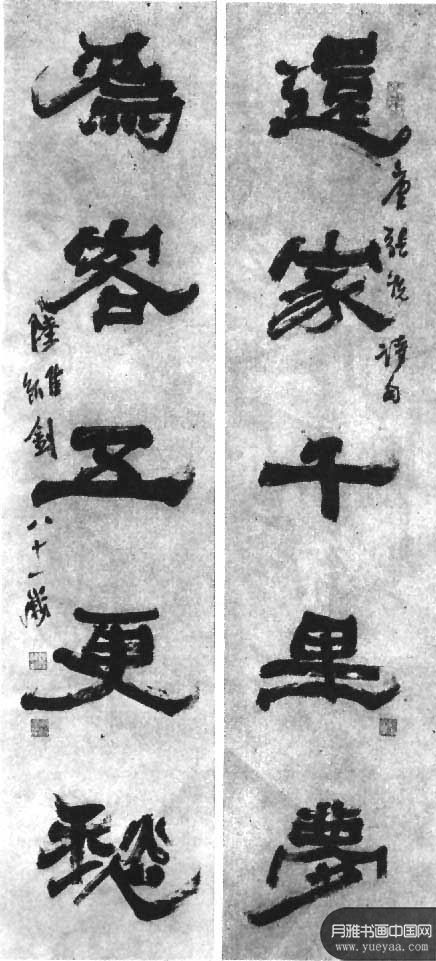 還家千里夢
唐張說詩句
為客五更愁
陸維釗 八十一歲
月雅书画中国网
www.yueyaa.com